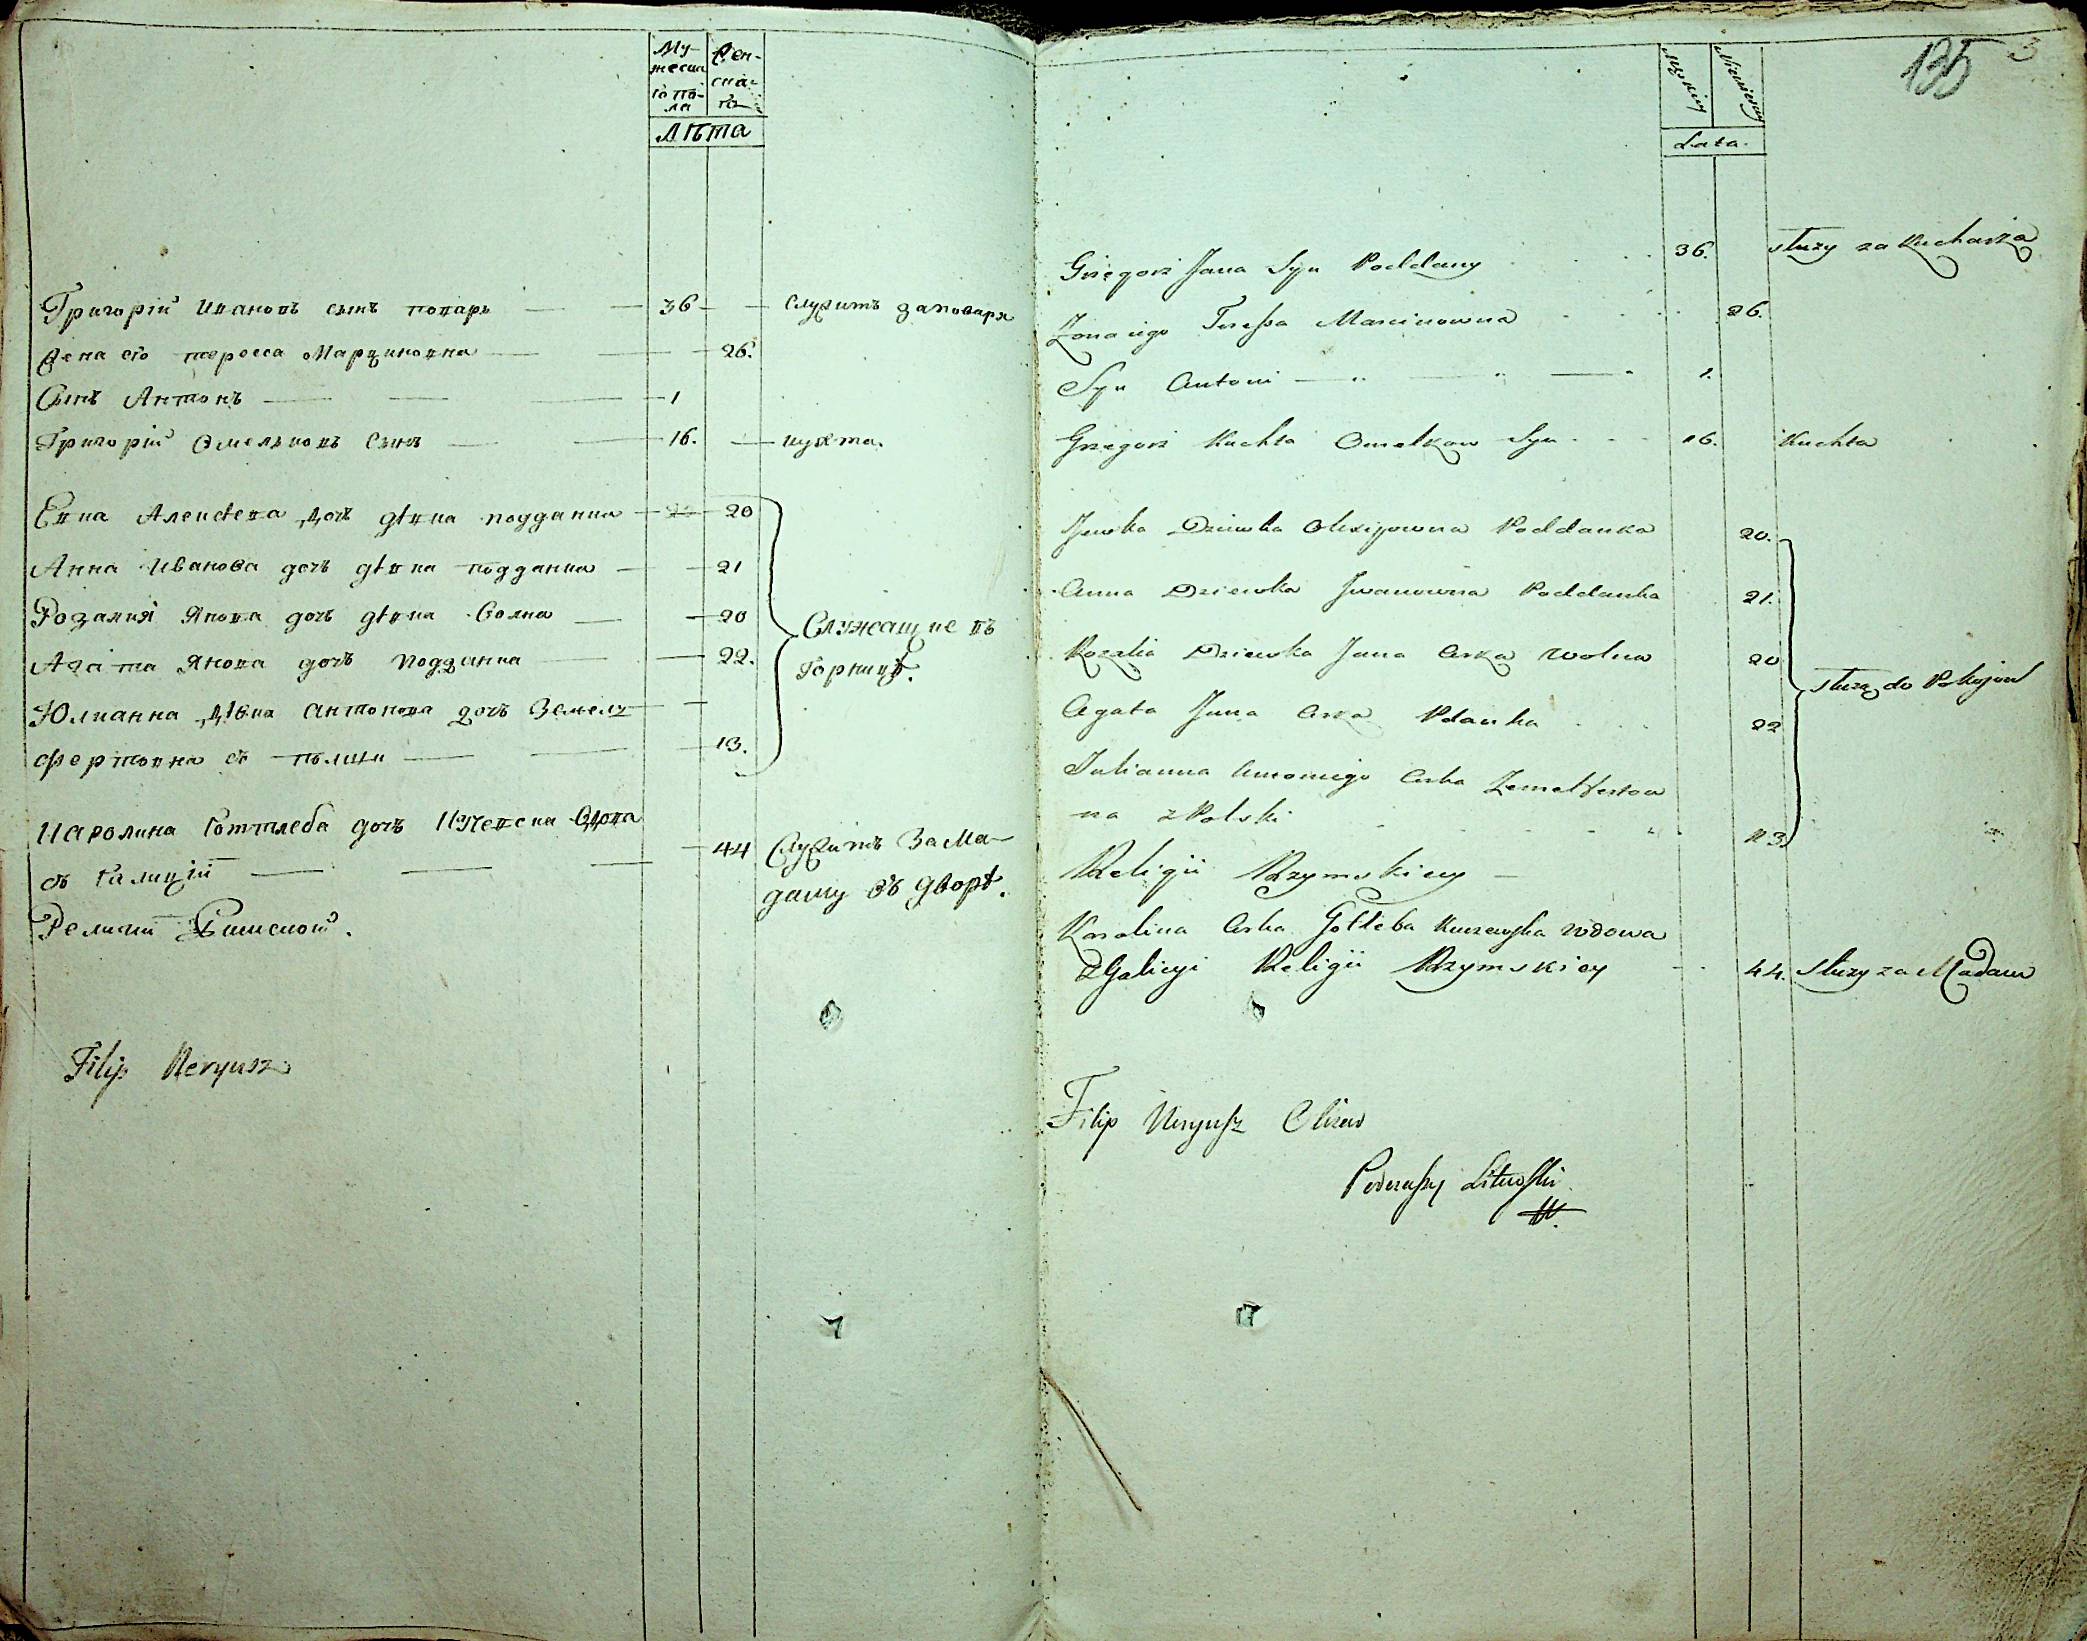 Му-
жеска
го по-
ла
Жен-
ска-
го
Лѣта
Григорїй Ивановъ сынъ поваръ 36 служитъ за повара
Жена его тересса Марциновна 26.
Сынъ Антонъ 1
Григорїй Омельковъ сынъ 16. кухта.
Евка Алексѣева дочъ дѣвка подданка 20
Анна Иванова дочъ дѣвка подданка 21
Розалия Янова дочъ дѣвка волна 20 Служащие въ
Агата Янова дочъ подданка 22. Горницѣ.
Юлианна дѣвка антонова дочъ Земелъ
фертовна съ полщи 13.
Каролина Готтлеба дочъ Кучевска вдова
съ Галицїи 44 Служитъ За Ма-
даму въ дворѣ.
Религии Римской.
Filip Neryusz
135 3
Męskiey
Niewieściey
Lata.
Grzegorz Jana Syn Poddany 36. służy za Kucharza
Zona iego Teressa Marcinowna 26.
Syn Antoni 1.
Grzegorz Kuchta Omelkow Syn 16. Kuchta
Jewka Dziewka Olexijowna Poddanka 20.
Anna Dziewka Jwanowna Poddanka 21.
Rozalia Dziewka Jana Crka Wolna 20
służą do Pokojow
Agata Jana Crka Pdanka 22
Julianna Antoniego Crka Zemelfertow
na z Polski 13.
Religii Rzymskiey
Karolina Crka Gotleba Kuczewska wdowa
z Galicyi Religii Rzymskiey 44. służy za Madam
Filip Neryusz Olizar
Podczaszy Litewski